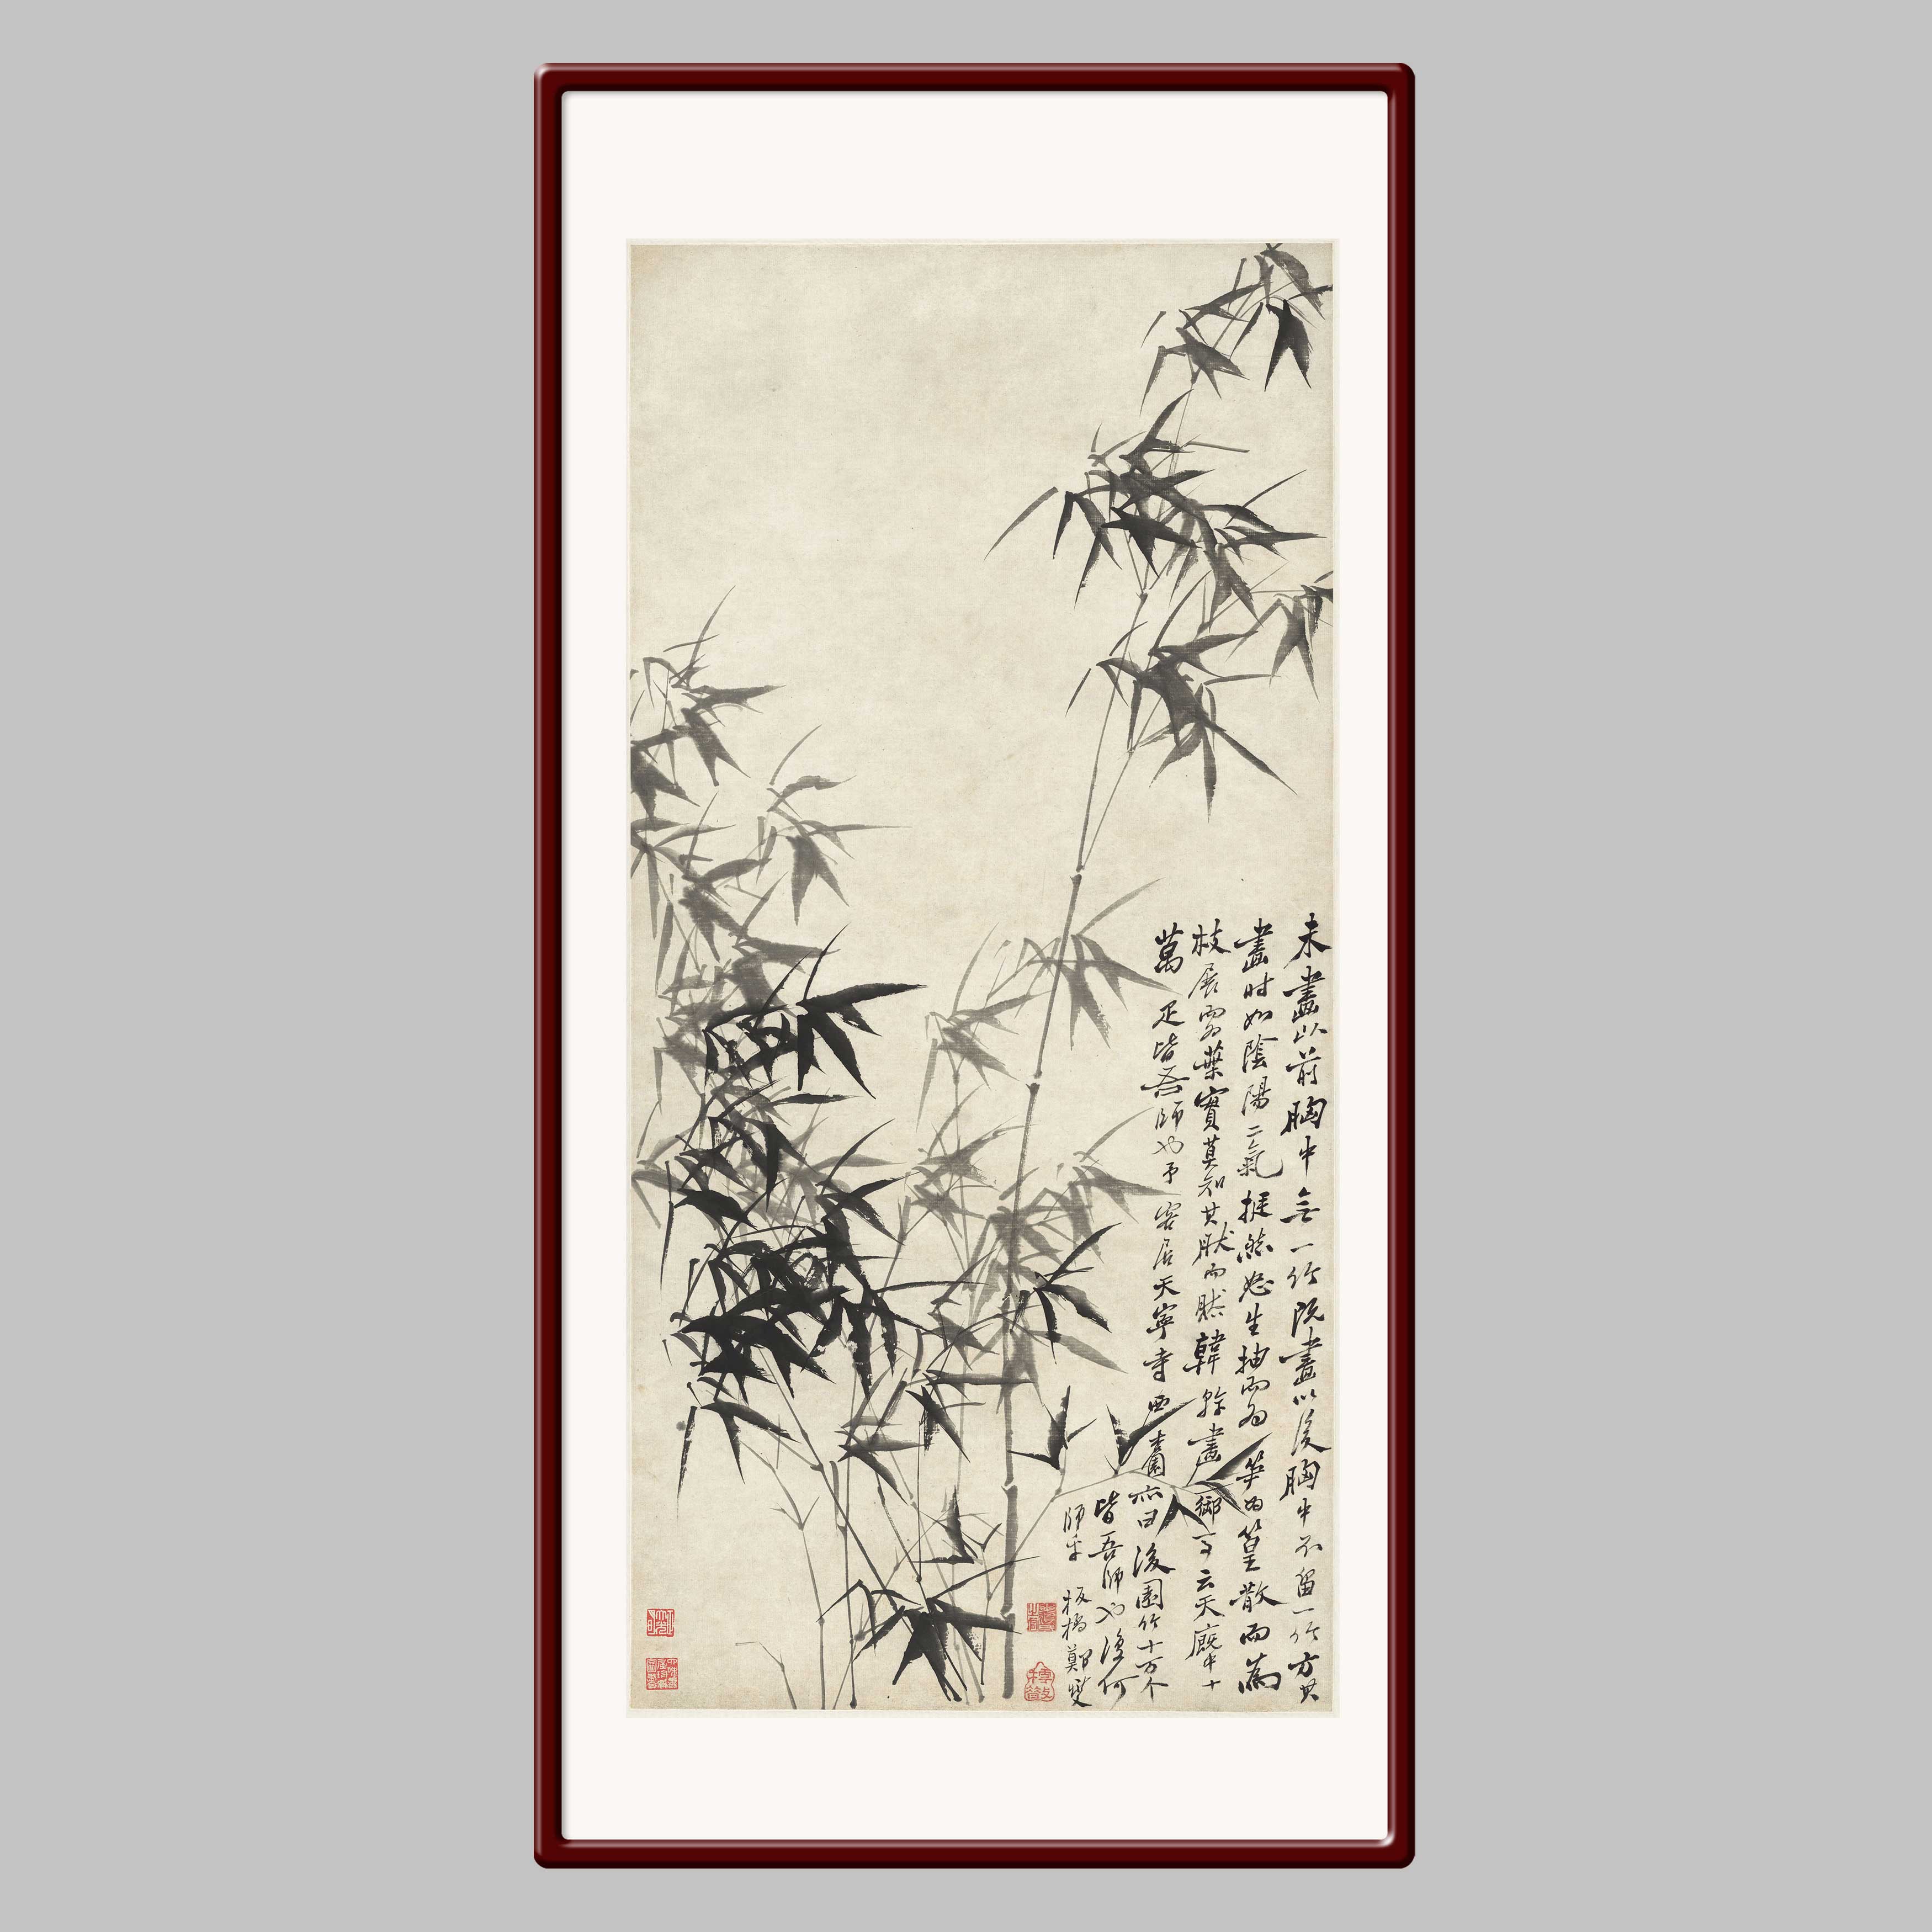 未畫以前胸中無一竹既畫以後胸中不留一竹方其
畫时如陰陽二氣挺然怒生抽而为笋为篁散而為
枝展而为葉實莫知其肰而肰韓幹畫御馬云天廐中十
萬疋皆吾師也予客居天寧寺西杏園亦曰後園竹十万个
皆吾師也復何
師乎 板橋鄭燮